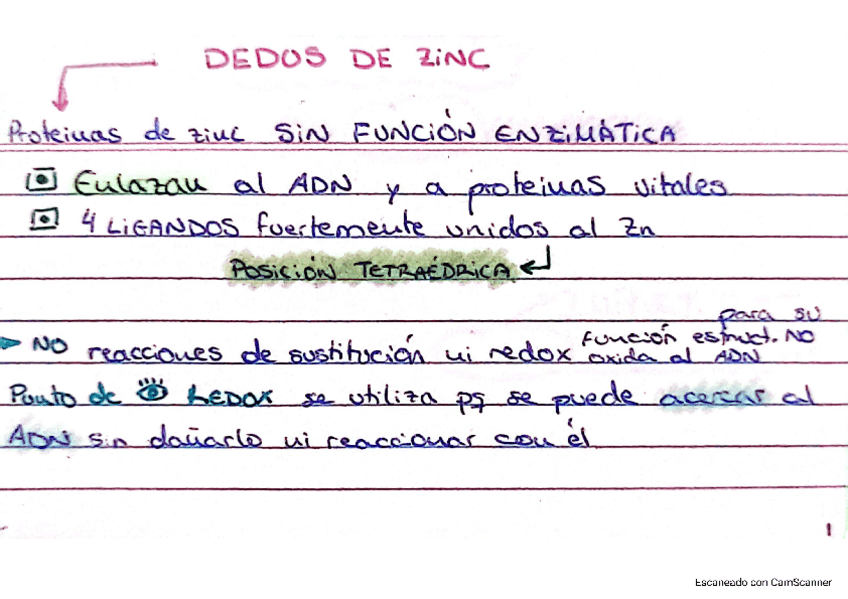 DEDOS DE ZINC
Proteinas de zinc SIN FUNCIÓN ENZIMÁTICA
Enlazan al ADN y a proteinas vitales
4 LIGANDOS fuertemente unidos al Zn
POSICIÓN TETRAÉDRICA
para su
NO reacciones de sustitución ni redox función estruct. NO
oxida al ADN
Punto de REDOX se utiliza pq se puede acercar al
ADN sin dañarlo ni reaccionar con él
1
Escaneado con CamScanner